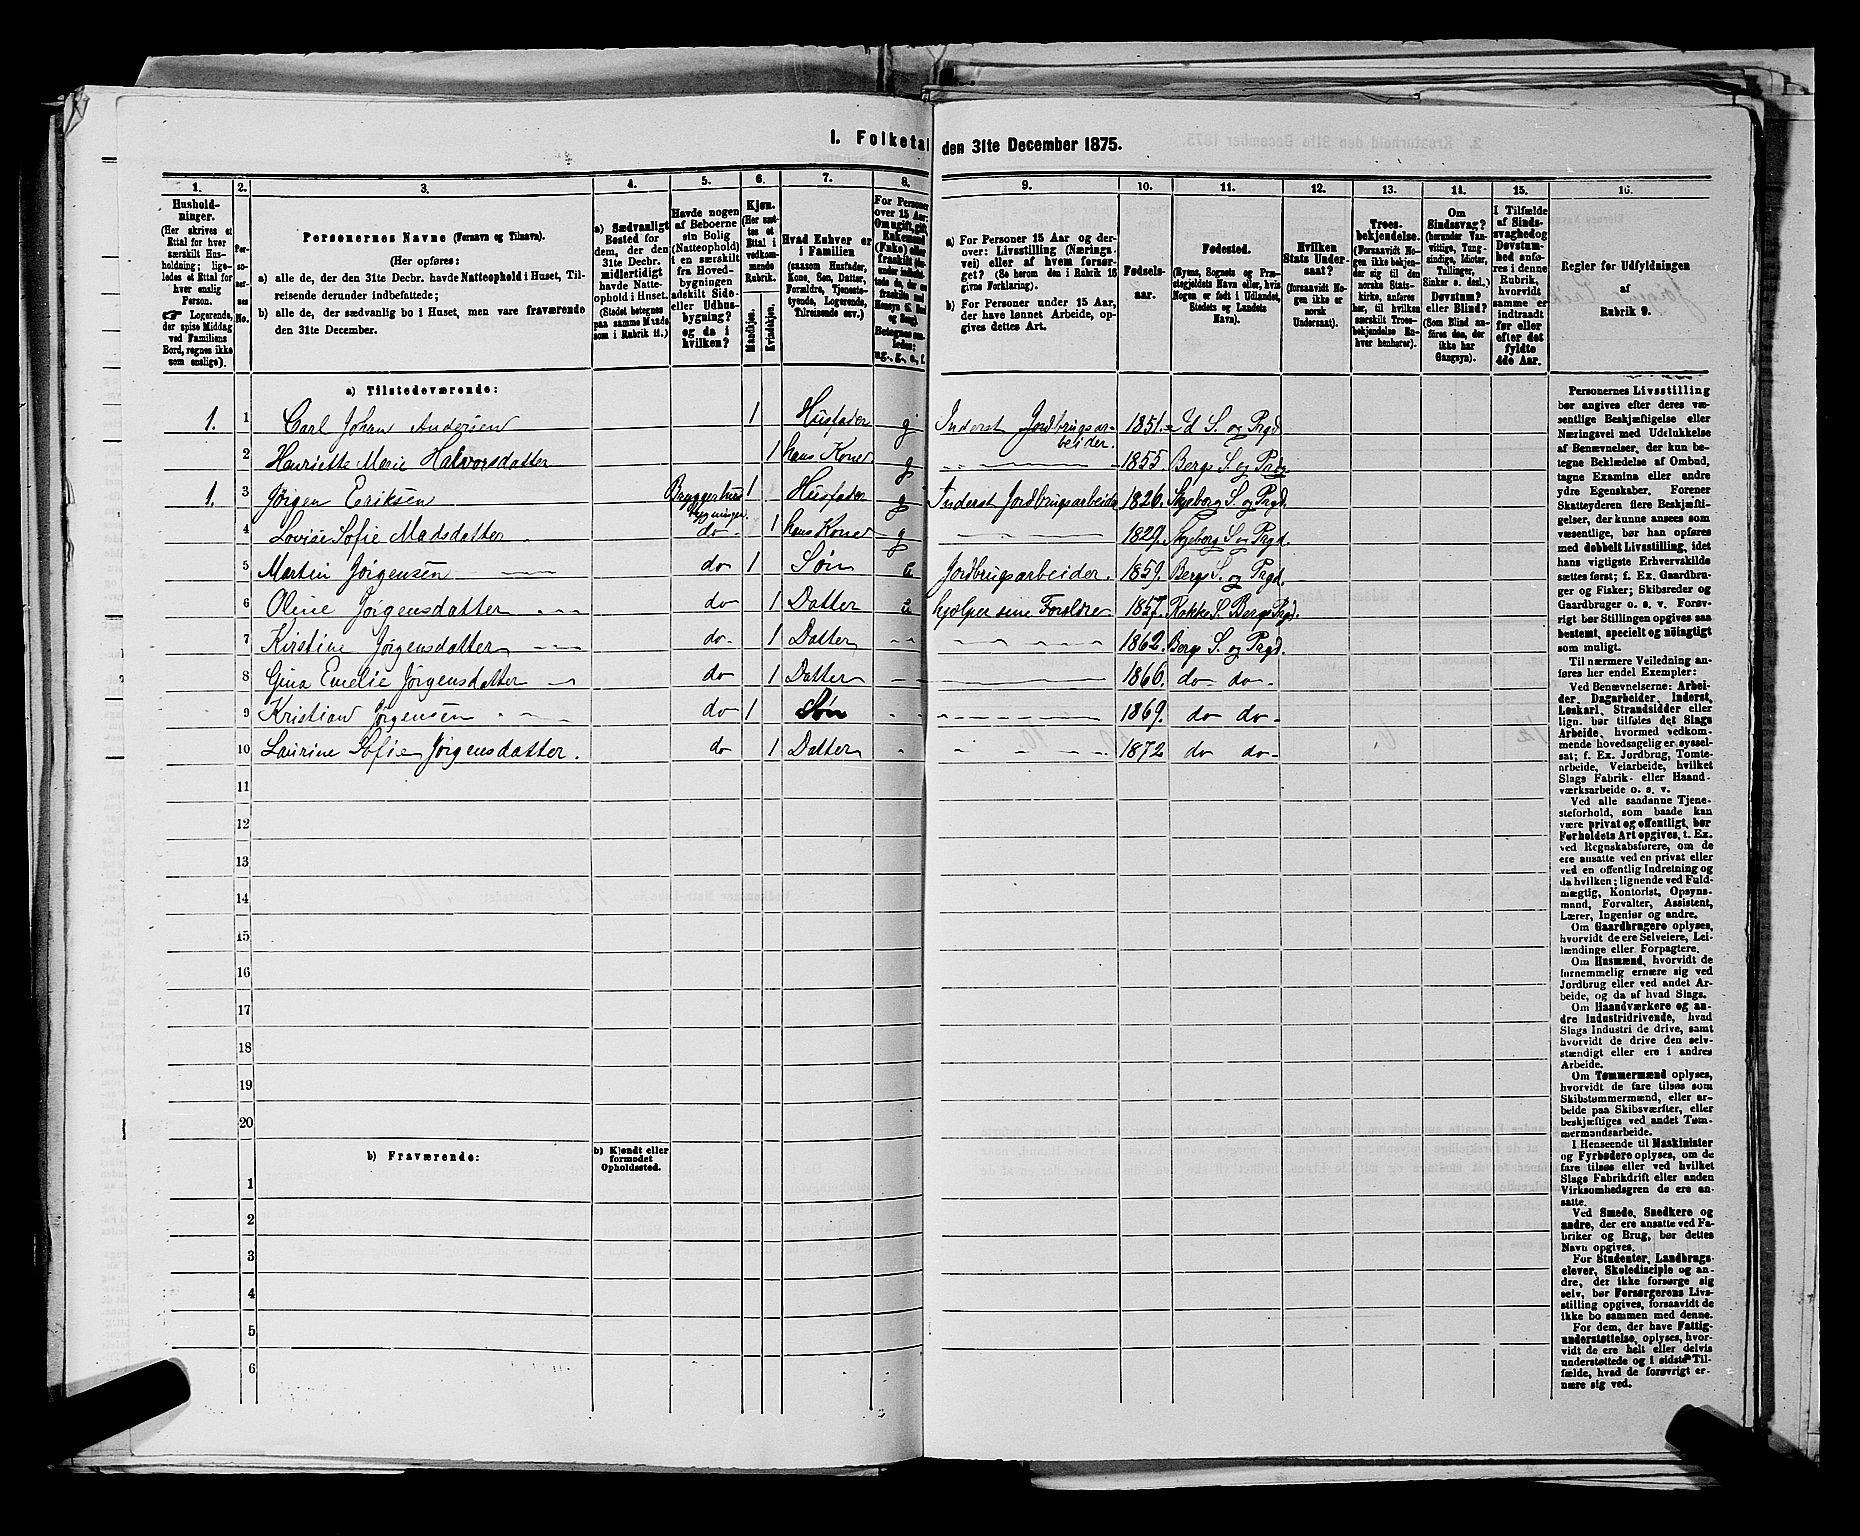 I. Folketal den 31te December 1875.
1. 2. 3. 4. 5. 6. 7. 8. 9. 10. 11. 12. 13. 14. 15. 16.
Hushold-
ninger.
(Her skrives et
Ettal for hver
særskilt Hus-
holdning; lige-
ledes et Ettal for
hver enslig
Person.
☞ Logerende,
der spise Middag
ved Familiens
Bord, regnes ikke
som enslige).
Per-
so-
ner-
nes
No.
Personernes Navne (Fornavn og Tilnavn).
(Her opføres:
a) alle de, der den 31te Decbr. havde Natteophold i Huset, Til-
reisende derunder indbefattede;
b) alle de, der sædvanlig bo i Huset, men vare fraværende
den 31te December.
a) Sædvanligt
Bosted for
dem, der den
31te Decbr.
midlertidigt
havde Natte-
ophold i Huset.
(Stedet betegnes
paa samme Maade
som i Rubrik 11.)
Havde nogen
af Beboerne
sin Bolig
(Natteophold)
i en særskilt
fra Hoved-
bygningen
adskilt Side-
eller Udhus-
bygning?
og da i
hvilken?
Kjøn.
(Her sæt-
tes et
Ettal i
vedkom-
mende
Rubrik.
Mandkjøn.
Kvindekjøn.
Hvad Enhver er
i Familien
(saasom Husfader,
Kone, Søn, Datter,
Forældre, Tjeneste-
tyende, Logerende,
Tilreisende osv.)
For Personer
over 15 Aar:
Om ugift, gift,
Enkemand
(Enke) eller
fraskilt
Betegnes saa-
ledes:
ug., g., e., f.
a) For Personer 15 Aar og der-
over: Livsstilling (Nærings-
vei) eller af hvem forsør-
get? (Se herom den i Rubrik 16
givne Forklaring).
b) For Personer under 15 Aar,
der have lønnet Arbeide, op-
gives dettes Art.
Fødsels-
aar.
Fødested.
(Byens, Sognets og Præ-
stegjeldets Navn eller, hvis
Nogen er født i Udlandet,
Stedets og Landets
Navn).
Hvilken
Stats Under-
saat?
(forsaavidt No-
gen ikke er
norsk
Undersaat).
Troes-
bekjendelse.
(Forsaavidt No-
gen ikke bekjen-
der sig til den
norske Stats-
kirke, anføres
her, til hvilken
særskilt Troes-
bekjendelse En-
hver henhører).
Om
Sindssvag?
(herunder Van-
vittige, Tung-
sindige, Idioter,
Tullinger,
Sinker o. desl.)
Døvstum?
eller Blind?
(Som Blind an-
føres den, der
ikke har
Gangsyn).
I Tilfælde
af Sinds-
svaghed og
Døvstum-
hed anfø-
res i denne
Rubrik,
hvorvidt
samme er
indtraadt
før eller
efter det
fyldte
4de Aar.
Regler for Udfyldningen
af
Rubrik 9.
a) Tilstedeværende:
1. 1 Carl Johan Andersen 1 Husfader g Inderst Jordbrugsar-
beider. 1851. Id S. og Prgd
2 Henriette Marie Halvorsdatter 1 hans Kone g 1855. Bergs S. og Prgd.
1. 3 Jørgen Eriksen Bryggerhus
bygningen 1 Husfader g Inderst Jordbrugsarbeider 1826. Skjeberg S. og Prgd.
4 Lovise Sofie Madsdatter do 1 hans Kone g 1829. Skjeberg S. og Prgd.
5 Martin Jørgensen do 1 Søn u Jordbrugsarbeider. 1859. Bergs S. og Prgd.
6 Oline Jørgensdatter do 1 Datter u hjælper sine Forældre 1857. Rokke S. Bergs Prgd.
7 Kirstine Jørgensdatter do 1 Datter 1862. Bergs S. og Prgd.
8 Gina Emelie Jørgensdatter do 1 Datter 1866. do do
9 Kristian Jørgensen do 1 Søn 1869. do do
10 Laurine Sofie Jørgensdatter. do 1 Datter 1872 do do
11
12
13
14
15
16
17
18
19
20
b) Fraværende:
b) Kjendt eller
formodet
Opholdssted.
1
2
3
4
5
6
Personernes Livsstilling
bør angives efter deres væ-
sentlige Beskjæftigelse eller
Næringsvei med Udelukkelse
af Benævnelser, der kun be-
tegne Beklædelse af Ombud,
tagne Examina eller andre
ydre Egenskaber. Forener
Skatteyderen flere Beskjæfti-
gelser, der kunne ansees som
væsentlige, bør han opføres
med dobbelt Livsstilling, idet
hans vigtigste Erhvervskilde
sættes først; f. Ex. Gaardbru-
ger og Fisker; Skibsreder og
Gaardbruger o. s. v. Forøv-
rigt bør Stillingen opgives saa
bestemt, specielt og nøiagtigt
som muligt.
Til nærmere Veiledning an-
føres her endel Exempler:
Ved Benævnelserne: Arbei-
der, Dagarbeider, Inderst,
Løskarl, Strandsidder eller
lign. bør tilføies det Slags
Arbeide, hvormed vedkom-
mende hovedsagelig er syssel-
sat; f. Ex. Jordbrug, Tomte-
arbeide, Veiarbeide, hvilket
Slags Fabrik- eller Haand-
værksarbeide o. s. v.
Ved alle saadanne Tjene-
steforhold, som baade kan
være privat og offentligt, bør
Forholdets Art opgives, t. Ex.
ved Regnskabsførere, om de
ere ansatte ved en privat eller
ved en offentlig Indretning og
da hvilken; lignende ved Fuld-
mægtig, Kontorist, Opsyns-
mand, Forvalter, Assistent,
Lærer, Ingeniør og andre.
Om Gaardbrugere oplyses,
hvorvidt de ere Selveiere, Lei-
lændinge eller Forpagtere.
Om Husmænd, hvorvidt de
fornemmelig ernære sig ved
Jordbrug eller ved andet Ar-
beide, og da af hvad Slags.
Om Haandværkere og an-
dre Industridrivende, hvad
Slags Industri de drive, samt
hvorvidt de drive den selv-
stændigt eller ere i andres
Arbeide.
Om Tømmermænd oplyses,
hvorvidt de fare tilsøs som
Skibstømmermænd, eller ar-
beide paa Skibsværfter, eller
beskjæftiges ved andet Tøm-
mermandsarbeide.
I Henseende til Maskinister
og Fyrbødere oplyses, om de
fare tilsøs eller ved hvilket
Slags Fabrikdrift eller anden
Virksomhedsgren de ere an-
satte.
Ved Smede, Snedkere og
andre, der ere ansatte ved Fa-
briker og Brug, bør dettes
Navn opgives.
For Studenter, Landbrugs-
elever, Skoledisciple og an-
dre, der ikke forsørge sig
selv, bør Forsørgerens Livs-
stilling opgives, forsaavidt de
ikke bo sammen med denne.
For dem, der have Fattig-
understøttelse, oplyses, hvor-
vidt de ere helt eller delvis
understøttede og i sidste Til-
fælde, hvad de forøvrigt er-
nære sig ved.